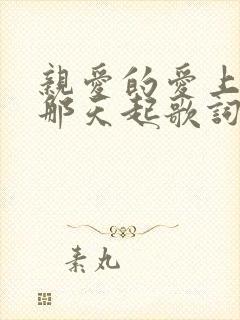 親愛的愛上
那天起歌詞
素丸